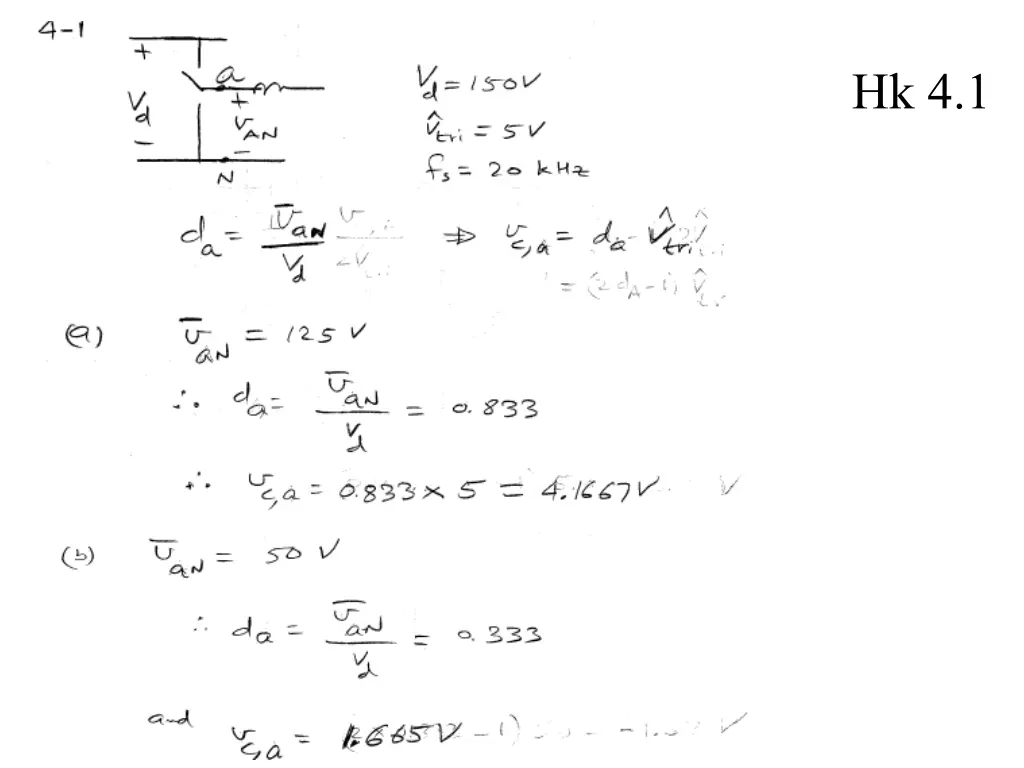 4-1
Hk 4.1
+
a
V_d = 150V
V_d
+
v_AN
v̂_tri = 5V
−
−
N
f_s = 20 kHz
d_a = v̄_aN / V_d ⇒ v_c,a = d_a V̂_tri
= (2d_A-1) V̂_tri
(a) v̄_aN = 125 V
∴ d_a = v̄_aN / V_d = 0.833
∴ v_c,a = 0.833 × 5 = 4.1667V V
(b) v̄_aN = 50 V
∴ d_a = v̄_aN / V_d = 0.333
and v_c,a = 1.665V